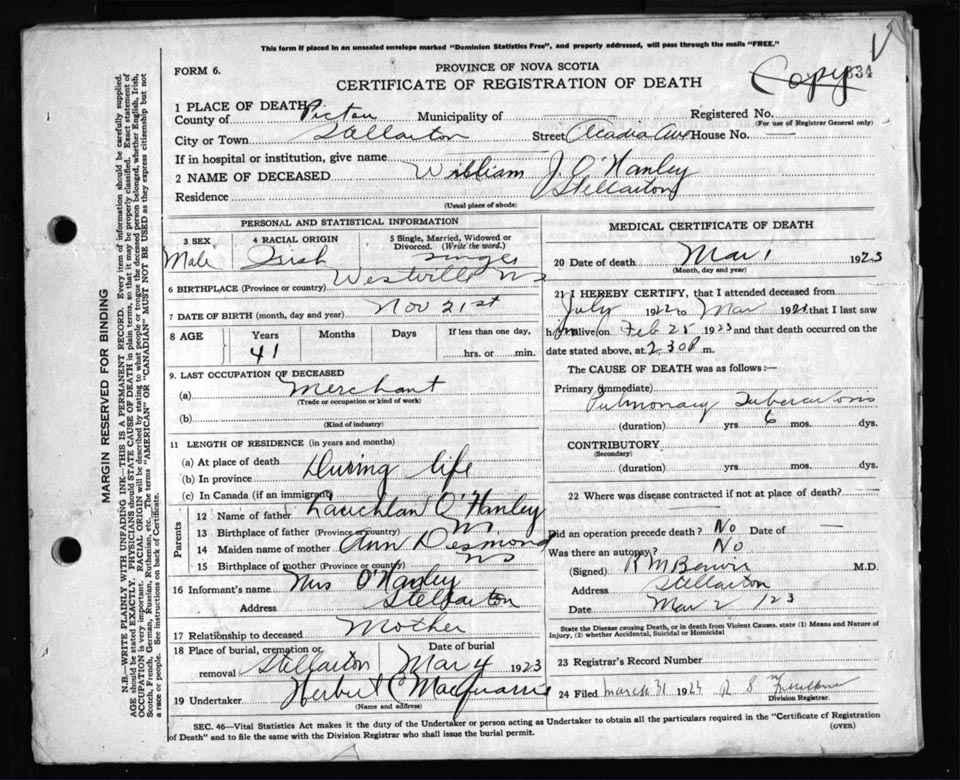 This form if placed in an unsealed envelope marked "Dominion Statistics Free", and properly addressed, will pass through the mails "FREE."
FORM 6.
PROVINCE OF NOVA SCOTIA
CERTIFICATE OF REGISTRATION OF DEATH
Copy
834
1 PLACE OF DEATH
County of Pictou Municipality of — Registered No.
(For use of Registrar General only)
City or Town Stellarton Street Acadia Ave House No. —
If in hospital or institution, give name
2 NAME OF DECEASED William J. O'Hanley
Residence Stellarton
(Usual place of abode)
PERSONAL AND STATISTICAL INFORMATION
3 SEX Male
4 RACIAL ORIGIN Irish
5 Single, Married, Widowed or Divorced. (Write the word.) Single
6 BIRTHPLACE (Province or country) Westville NS
7 DATE OF BIRTH (month, day and year) Nov 21st
8 AGE Years Months Days If less than one day,
41 hrs. or min.
9. LAST OCCUPATION OF DECEASED
(a) Merchant
(Trade or occupation or kind of work)
(b)
(Kind of industry)
11 LENGTH OF RESIDENCE (in years and months)
(a) At place of death
(b) In province During life
(c) In Canada (if an immigrant)
Parents
12 Name of father Lauchlan O'Hanley
13 Birthplace of father (Province or country) NS
14 Maiden name of mother Ann Desmond
15 Birthplace of mother (Province or country) NS
16 Informant's name Mrs O'Hanley
Address Stellarton
17 Relationship to deceased Mother
18 Place of burial, cremation or removal Stellarton
Date of burial Mar 4 1923
19 Undertaker Herbert C MacQuarrie
(Name and address)
MEDICAL CERTIFICATE OF DEATH
20 Date of death Mar 1 1923
(Month, day and year)
21 I HEREBY CERTIFY, that I attended deceased from
July 1922 to Mar 192 that I last saw
him alive on Feb 28 1923 and that death occurred on
date stated above, at 2.30 P m.
The CAUSE OF DEATH was as follows:—
Primary (Immediate)
Pulmonary Tuberculosis
(duration) yrs 6 mos. dys.
CONTRIBUTORY
(Secondary)
(duration) yrs. mos. dys.
22 Where was disease contracted if not at place of death?
Did an operation precede death? No Date of —
Was there an autopsy? No
(Signed) R M M.D.
Address Stellarton
Date Mar 2 / 23
State the Disease causing Death, or in death from Violent Causes, state (1) Means and Nature of Injury, (2) whether Accidental, Suicidal or Homicidal
23 Registrar's Record Number
24 Filed March 31 1923 R S
Division Registrar.
SEC. 46—Vital Statistics Act makes it the duty of the Undertaker or person acting as Undertaker to obtain all the particulars required in the "Certificate of Registration
of Death" and to file the same with the Division Registrar who shall issue the burial permit. (OVER)
MARGIN RESERVED FOR BINDING
N.B.—WRITE PLAINLY WITH UNFADING INK—THIS IS A PERMANENT RECORD. Every item of information should be carefully supplied.
AGE should be stated EXACTLY. PHYSICIANS should STATE CAUSE OF DEATH in plain terms, so that it may be properly classified. Exact statement of
OCCUPATION is very important. RACIAL ORIGIN will be described by stating to what people or tongue the deceased person belonged, whether English, Irish,
Scotch, French, German, Russian, Ruthenian, etc. The terms "AMERICAN" OR "CANADIAN" MUST NOT BE USED as they express citizenship but not
a race or people. See instructions on back of Certificate.